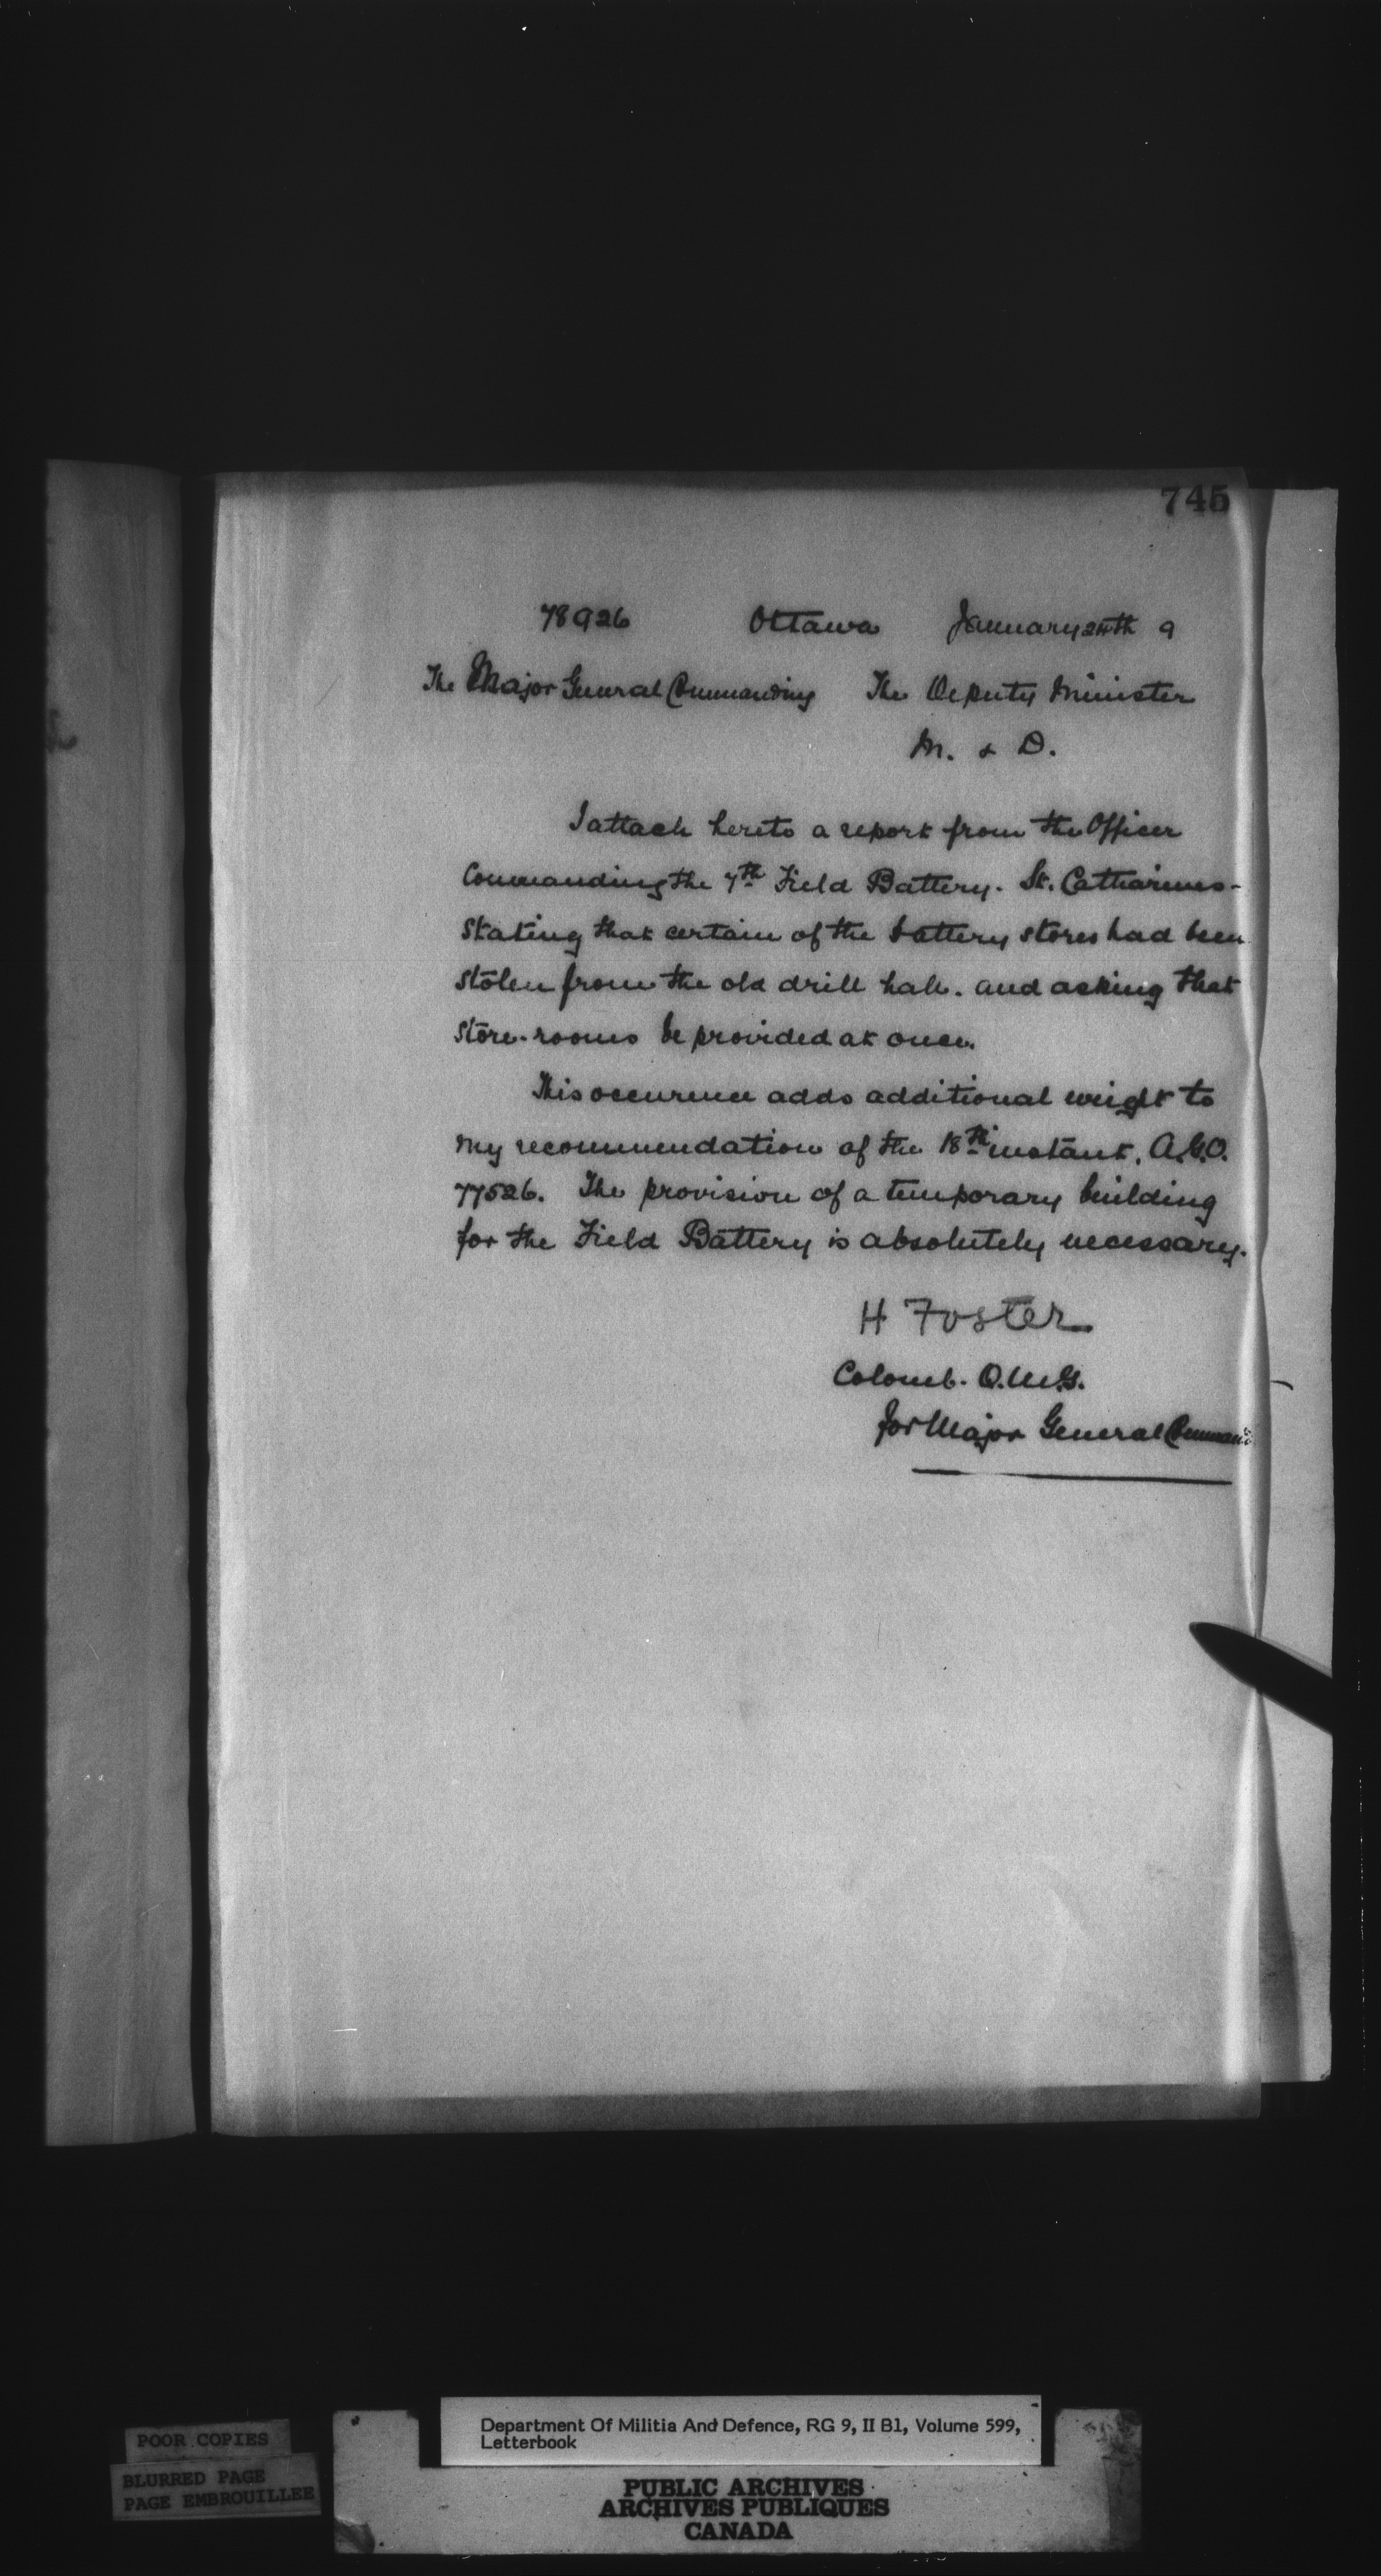 745
78926 Ottawa January 24th 9
The Major General Commanding The Deputy Minister
M. & D.
I attach hereto a report from the Officer
Commanding the 7th Field Battery. St. Catharines -
stating that certain of the battery stores had been
stolen from the old drill hall. and asking that
store-rooms be provided at once.
This occurence adds additional weight to
my recommendation of the 18th instant. A.G.O.
77526. The provision of a temporary building
for the Field Battery is absolutely necessary.
H Foster
Colonel. Q.M.G.
for Major General
POOR COPIES
BLURRED PAGE
PAGE EMBROUILLEE
Department Of Militia And Defence, RG 9, II B1, Volume 599,
Letterbook
PUBLIC ARCHIVES
ARCHIVES PUBLIQUES
CANADA